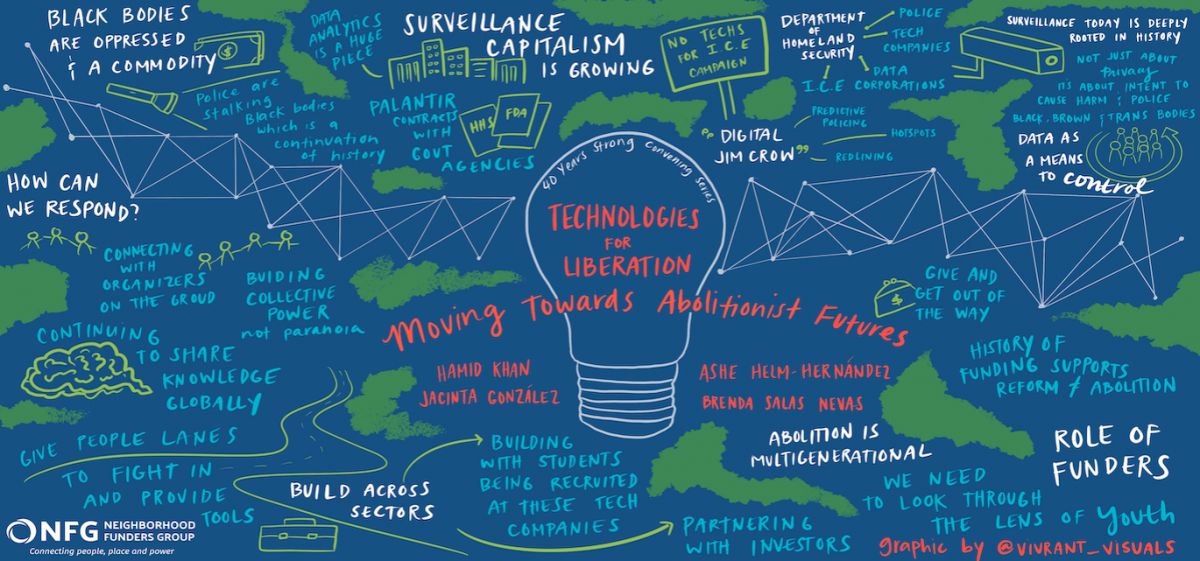 BLACK BODIES
ARE OPPRESSED
& A COMMODITY
Police are
stalking
Black bodies
which is a
continuation
of history
DATA
ANALYTICS
IS A HUGE
PIECE
SURVEILLANCE
CAPITALISM
IS GROWING
PALANTIR
CONTRACTS
WITH
GOVT
AGENCIES
HHS
FDA
NO TECHS
FOR I.C.E
CAMPAIGN
DEPARTMENT
OF
HOMELAND
SECURITY
POLICE
TECH
COMPANIES
DATA
CORPORATIONS
I.C.E
"DIGITAL
JIM CROW"
PREDICTIVE
POLICING
HOTSPOTS
REDLINING
SURVEILLANCE TODAY IS DEEPLY
ROOTED IN HISTORY
NOT JUST ABOUT
Privacy
IT'S ABOUT INTENT TO
CAUSE HARM & POLICE
BLACK, BROWN & TRANS BODIES
DATA AS
A MEANS
TO control
40 Years Strong Convening Series
TECHNOLOGIES
FOR
LIBERATION
Moving Towards Abolitionist Futures
HAMID KHAN
JACINTA GONZÁLEZ
ASHE HELM-HERNÁNDEZ
BRENDA SALAS NEVAS
HOW CAN
WE RESPOND?
CONNECTING
WITH
ORGANIZERS
ON THE GROUD
BUIDING
COLLECTIVE
POWER
not paranoia
CONTINUING
TO SHARE
KNOWLEDGE
GLOBALLY
GIVE PEOPLE LANES
TO FIGHT IN
AND PROVIDE
TOOLS
BUILD ACROSS
SECTORS
BUILDING
WITH STUDENTS
BEING RECRUITED
AT THESE TECH
COMPANIES
PARTNERING
WITH INVESTORS
$
GIVE AND
GET OUT OF
THE WAY
HISTORY OF
FUNDING SUPPORTS
REFORM ≠ ABOLITION
ROLE OF
FUNDERS
ABOLITION IS
MULTIGENERATIONAL
WE NEED
TO LOOK THROUGH
THE LENS OF Youth
NFG NEIGHBORHOOD
FUNDERS GROUP
Connecting people, place and power
graphic by @VIVRANT_VISUALS